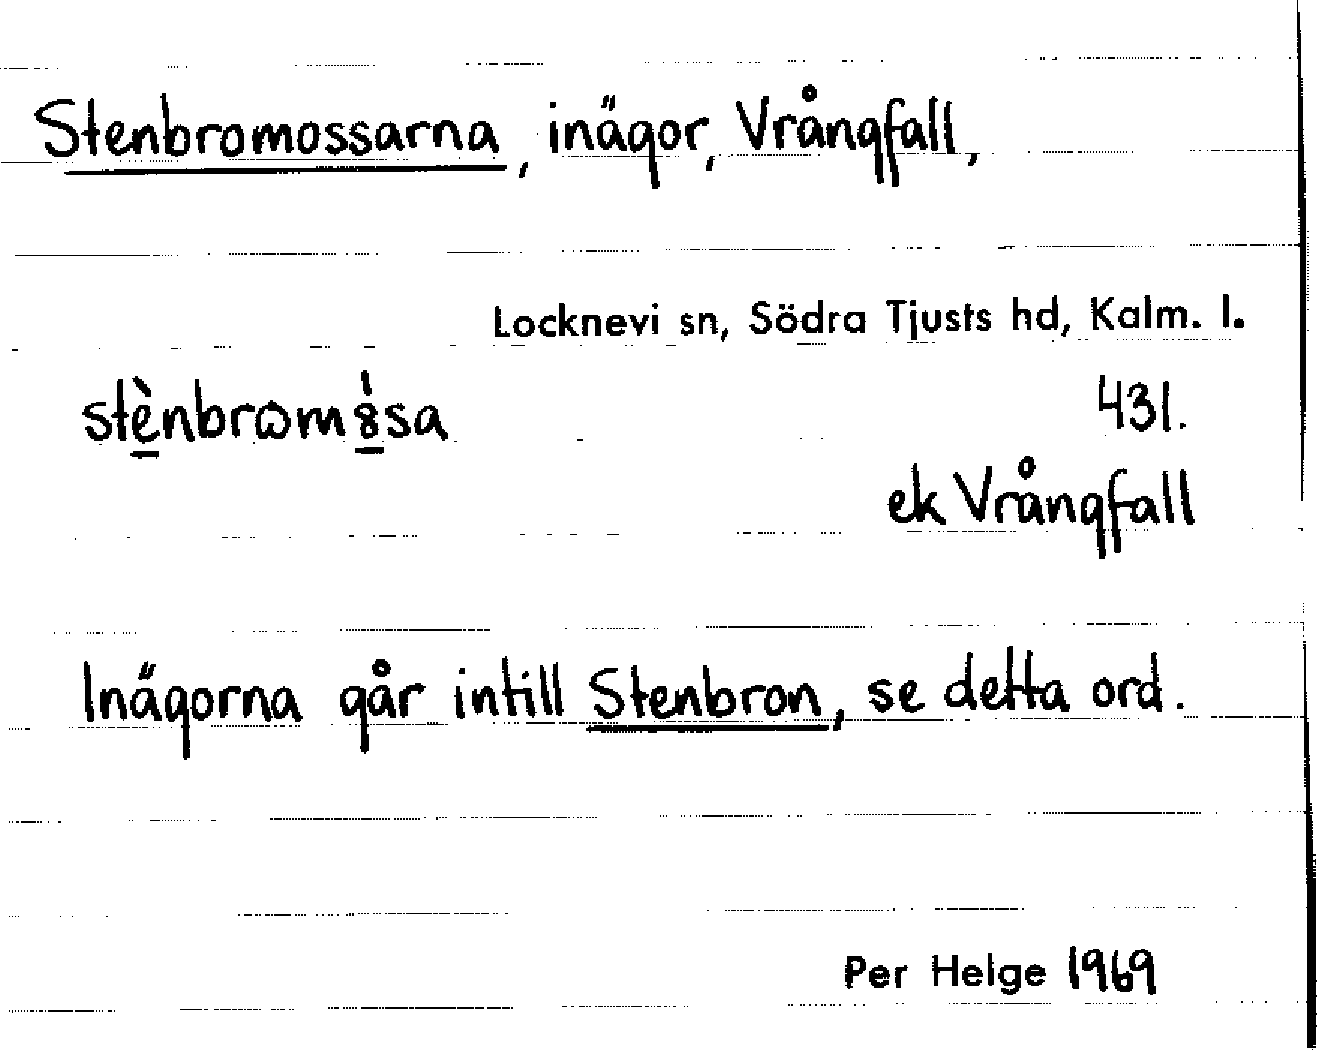 Stenbromossarna, inägor, Vrångfall,
Locknevi sn, Södra Tjusts hd, Kalm. l.
stè̱nbrωm8̱́sa 431.
ek Vrångfall
Inägorna går intill Stenbron, se detta ord.
Per Helge 1969